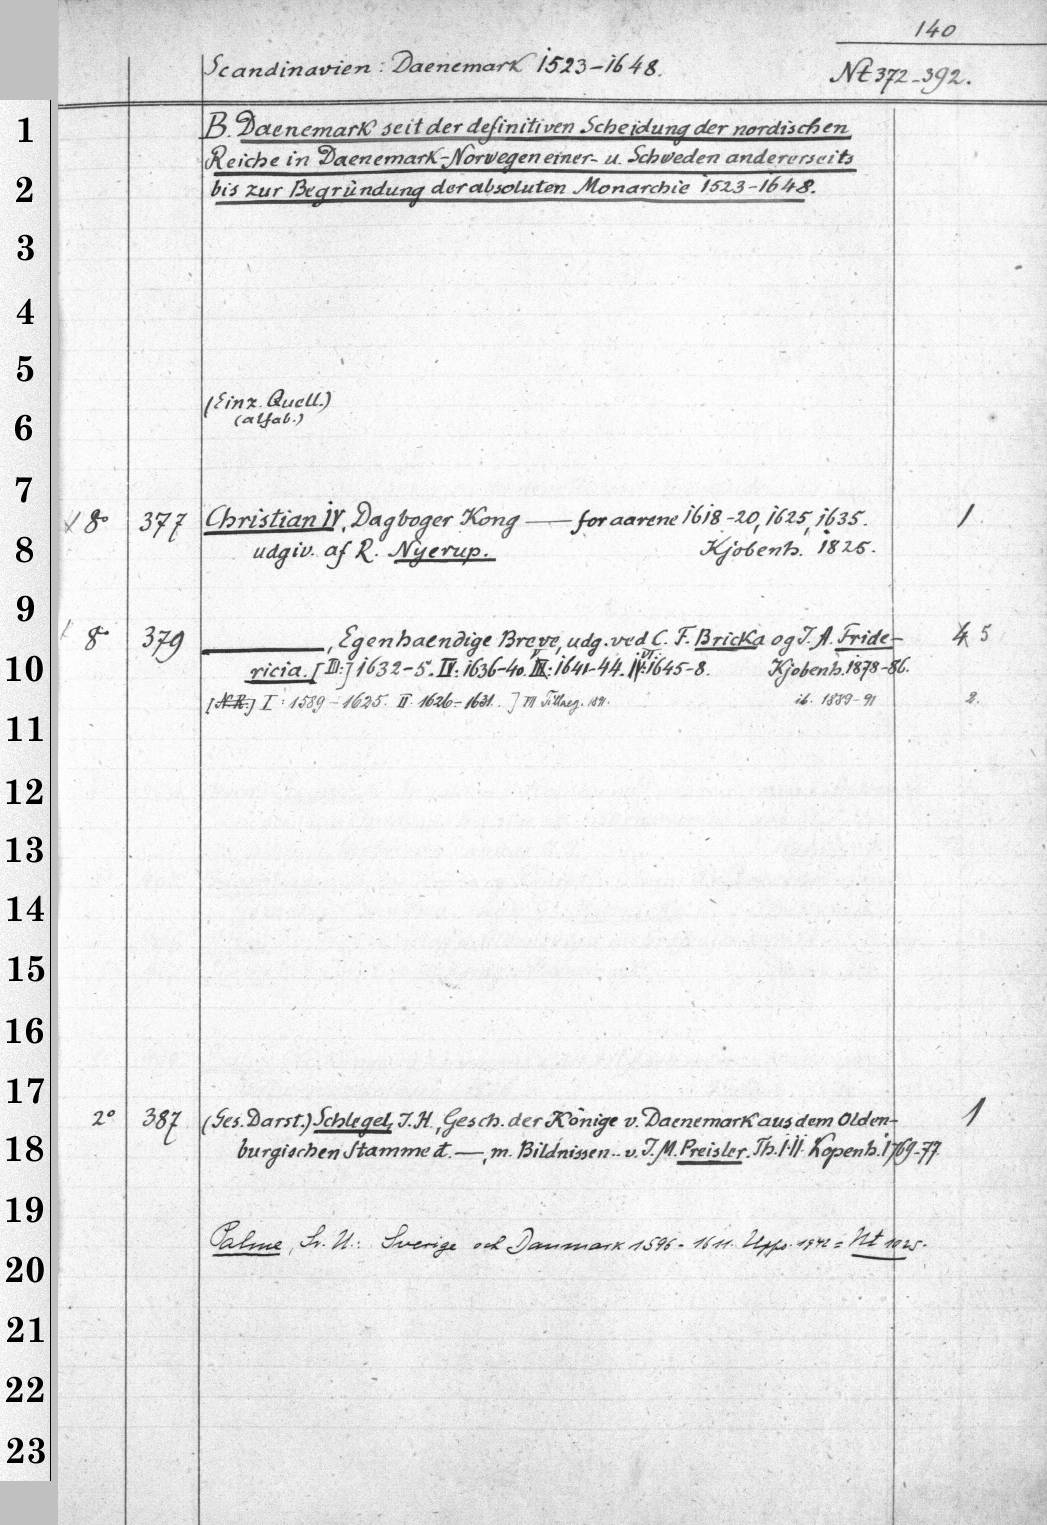 140
Scandinavien: Daenemark 1523-1648.
Nt 372-392.
B. Daenemark seit der definitiven Scheidung der nordischen
Reiche in Daenemark-Norwegen einer- u. Schweden andererseits
bis zur Begründung der absoluten Monarchie 1523-1648.
(Einz. Quell.)
(alfab.)
8° 377 Christian IV, Dagboger Kong — for aarene 1618-20, 1625, 1635. 1
udgiv. af R. Nyerup. Kjobenh. 1825.
8° 379 ———, Egenhaendige Breve, udg. ved C. F. Bricka og J. A. Fride- 4 5
ricia. [III:] 1632-5. IV: 1636-40. V: 1641-44. VI: 1645-8. Kjobenh. 1878-86.
[N.R.] I: 1589-1625. II: 1626-1631.] Tillaeg. 1891. ib. 1889-91 2.
2° 387 (Ges. Darst.) Schlegel, J. H., Gesch. der Könige v. Daenemark aus dem Olden- 1
burgischen Stamme d. —, m. Bildnissen v. J. M. Preisler. Th. I-II. Kopenh. 1769-77
Palme, Sv. U.: Sverige och Danmark 1596-1611. Upps. 1942 = Nt 1025.
1
2
3
4
5
6
7
8
9
10
11
12
13
14
15
16
17
18
19
20
21
22
23